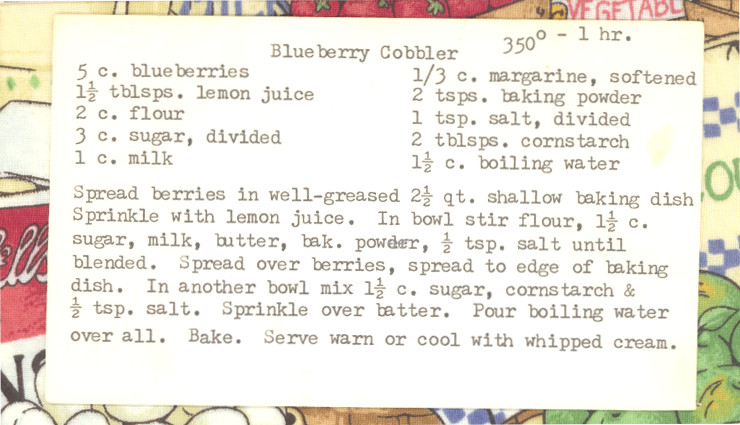 VEGETABL
350° - 1 hr.
Blueberry Cobbler
5 c. blueberries
1½ tblsps. lemon juice
2 c. flour
3 c. sugar, divided
1 c. milk
1/3 c. margarine, softened
2 tsps. baking powder
1 tsp. salt, divided
2 tblsps. cornstarch
1½ c. boiling water
Spread berries in well-greased 2½ qt. shallow baking dish
Sprinkle with lemon juice. In bowl stir flour, 1½ c.
sugar, milk, butter, bak. powder, ½ tsp. salt until
blended. Spread over berries, spread to edge of baking
dish. In another bowl mix 1½ c. sugar, cornstarch &
½ tsp. salt. Sprinkle over batter. Pour boiling water
over all. Bake. Serve warn or cool with whipped cream.